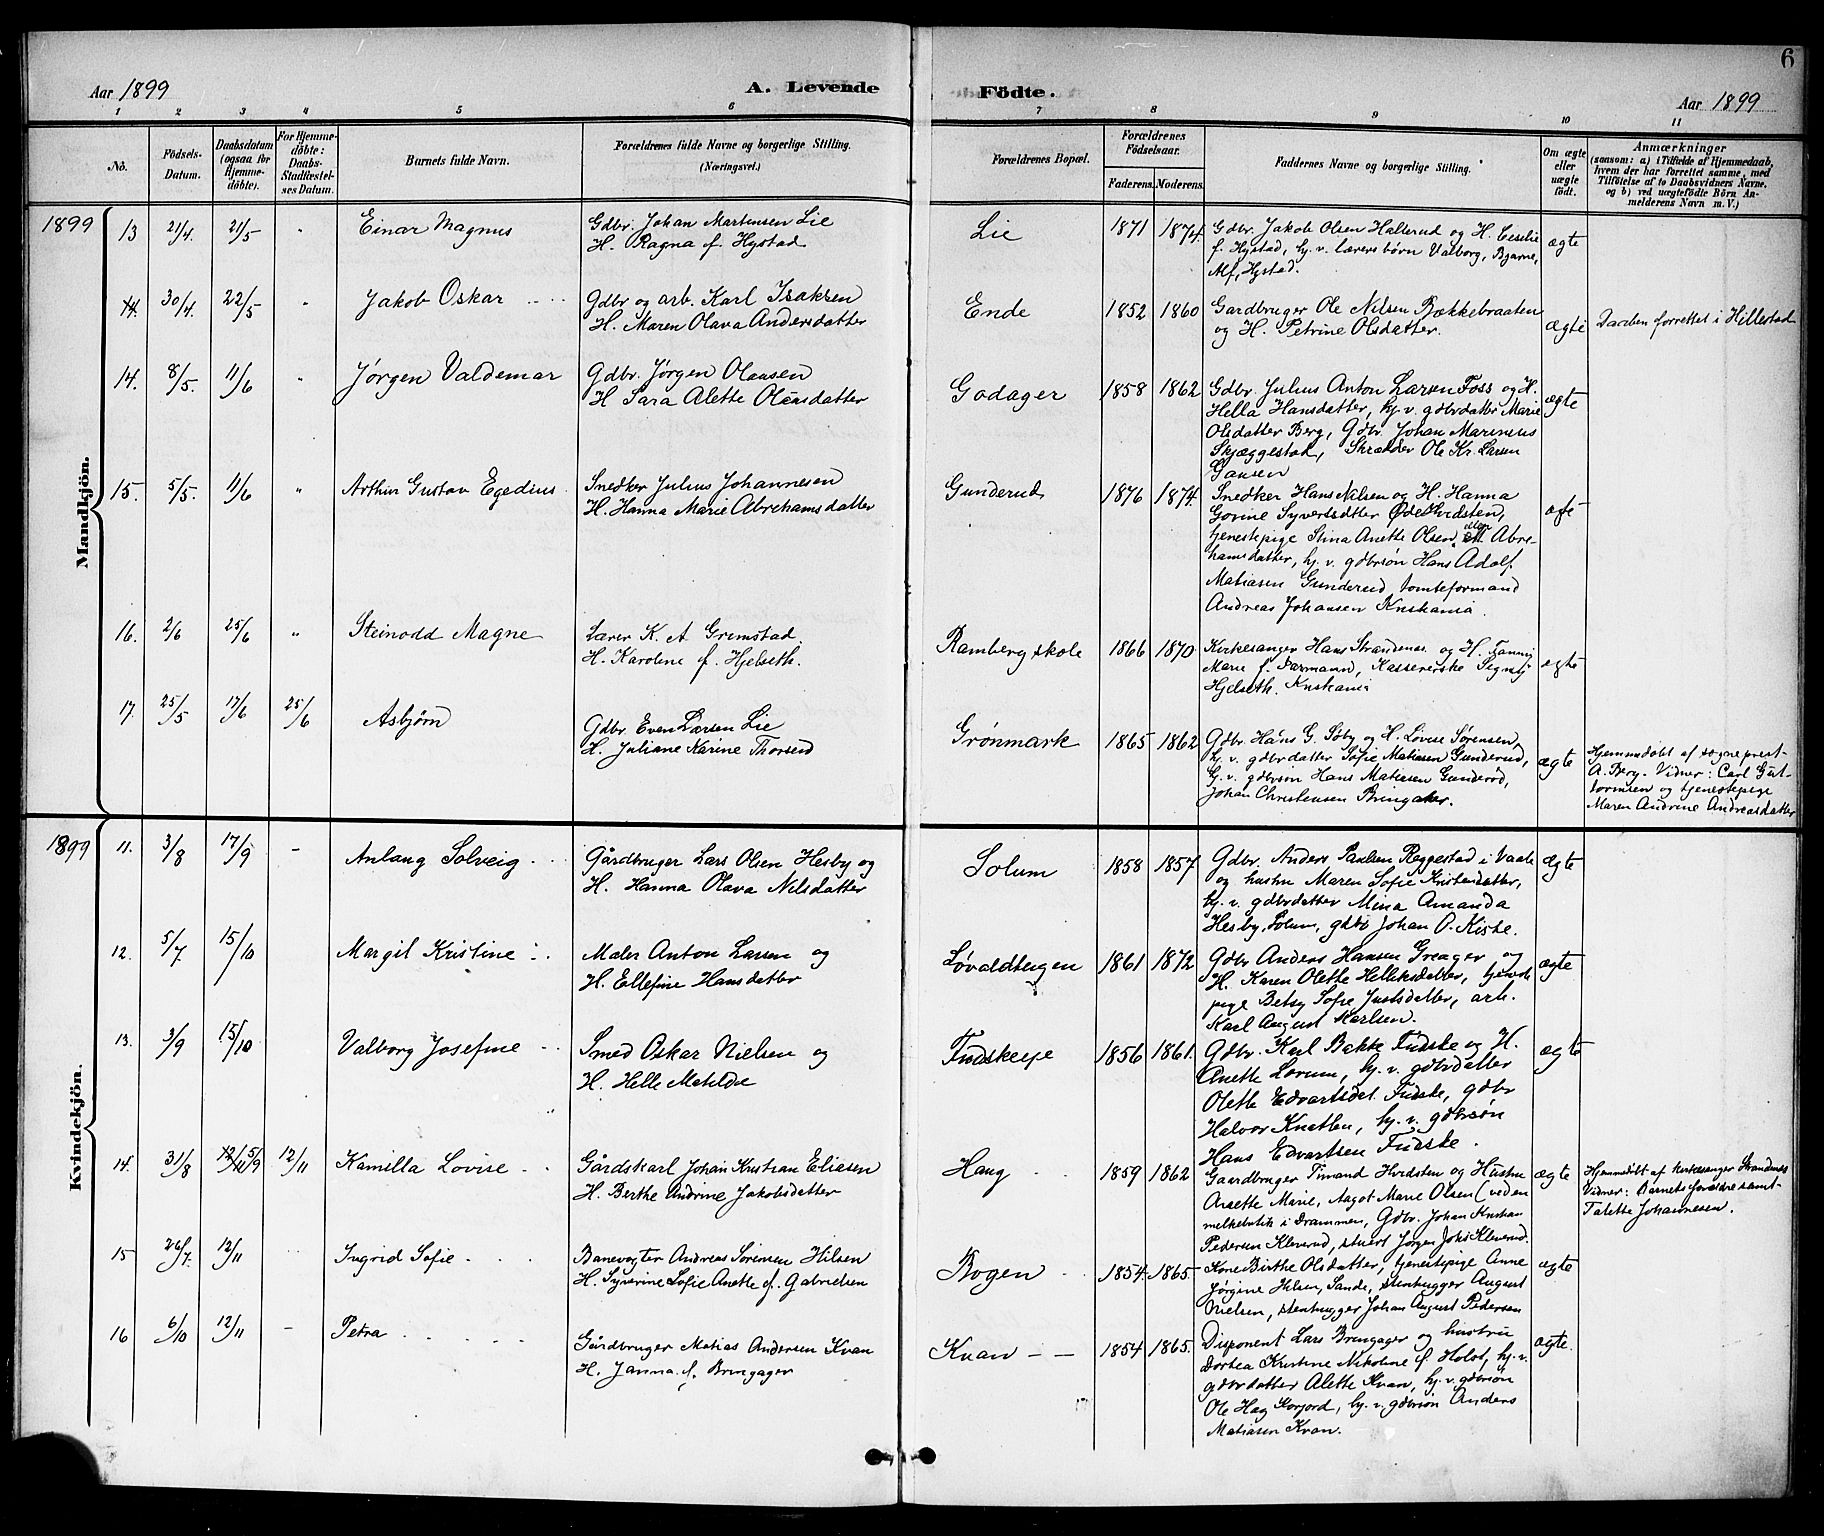 6
Aar 1899 A. Levende Födte. Aar 1899
1 2 3 4 5 6 7 8 9 10 11
No.
Födsels-Datum.
Daabsdatum (ogsaa for Hjemme-döbte).
For Hjemme-döbte: Daabs-Stadfæstel-ses Datum.
Barnets fulde Navn.
Forældrenes fulde Navne og borgerlige Stilling. (Næringsvei.)
Forældrenes Bopæl.
Forældrenes Födselsaar.
Faderens. Moderens.
Faddernes Navne og borgerlige Stilling.
Om ægte eller uægte födt.
Anmærkninger
(saasom: a) i Tilfælde af Hjemmedaab,
hvem der har forrettet samme, med
Tilföielse af to Daabsvidners Navne,
og b) ved uægtefödte Börn An-
melderens Navn m. V.)
Mandkjön.
1899 13 21/4. 21/5 " Einar Magnus
Gdbr. Johan Martinsen Lie
H. Ragna f. Hystad
Lie 1871 1874.
Gdbr. Jakob Olsen Hallerud og H. Ceselie
f. Hystad, hj. v. lærers børn Valborg, Bjarne,
Alf, Hystad.
ægte
14. 30/4. 22/5 " Jakob Oskar
Gdbr og arb. Karl Isaksen
H. Maren Olava Andersdatter
Ende 1852 1860
Gardbruger Ole Nilsen Bækkebraaten
og H. Petrine Olsdatter.
ægte
Daaben forrettet i Hillestad
14. 8/5. 11/6 " Jørgen Valdemar
Gdbr. Jørgen Olausen
H Sara Alette Olensdatter
Godager 1858 1862
Gdbr. Julius Anton Larsen Foss og H.
Hella Hansdatter, hj. v. gdbrdatter Marie
Olsdatter Berg, Gdbr. Johan Marinius
Skjæggestad, Skrædder Ole Kr. Larsen
Gausen
ægte
15. 5/5. 11/6 " Arthur Gustav Egedius
Snedker Julius Johannesen
H. Hanna Marie Abrahamsdatter
Gunderud 1876 1874.
Snedker Hans Nilsen og H. Hanna
Govine Syvertsdtter Ødehvidsten,
tjenestepige Stina Anette Olsen, Abra-
hamsdatter, hj. v. gdbrsøn Hans Adolf
Matiasen Gunderud tomteformand
Andreas Johansen Kristiania.
16. 2/6 25/6 " Steinodd Magne
Lærer K. A Grimstad.
H. Karoline f. Hjelseth.
Ramberg skole 1866 1870
Kirkesanger Hans Strandenes og H. Fanny
Marie f. Darmann, Kassererske Signy
Hjelseth. Kristiania
ægte
17. 25/5 17/6 25/6 Asbjørn
Gdbr. Even Larsen Lie
H. Juliane Karine Thorsen
Grønmark 1865 1862
Gdbr. Hans G. Søby og H. Lovise Sørensen,
hj. v. gdbrdatter Sofie Matiasen Gunderud,
hj. v. gdbrsøn Hans Matiasen Gunderød,
Johan Christensen Bringaker.
ægte
Hjemmedøbt af sogneprest
A. Berg. Vidner: Carl Gut-
tormsen og tjenestepige
Maren Andrine Andreasdatter
Kvindekjön.
1899 11. 3/8 17/9 - Anlaug Solveig
Gårdbruger Lars Olsen Hesby og
H. Hanna Olava Nilsdatter
Solum 1858 1857.
Gdbr. Anders Paulsen Reggestad i Vaale
og hustru Maren Sofie Kristensdatter,
hj. v. gdbrdatter Mina Amanda
Hesby, Solum, gdbr Johan O. Kiste.
ægte
12. 5/7 15/10 Margit Kristine
Maler Anton Larsen og
H. Ellefine Hansdatter
Løvaldbergen 1861 1872
Gdbr Anders Hansen Greager og
H. Karen Olette Helliksdatter, tjeneste
pige Betsy Sofie Justsdatter, arb.
Karl August Karlsen.
ægte
13. 3/9 15/10 Valborg Josefine
Smed Oskar Nielsen og
H. Helle Matilde
Fudskeeje 1856 1861.
Gdbr. Karl Bakke Fudske og H.
Anette Lorum, hj. v. gdbrdatter
Olette Edvartsdat. Fudske, gdbr
Halvor Knatten, hj. v. gdbrsøn
Hans Edvartsen Fudske.
ægte
14. 31/8 12/11 5/9 12/11 Kamilla Lovise
Gårdskarl Johan Kristian Eliasen
H. Berthe Andrine Jakobsdatter
Haug 1859 1862
Gaardbruger Timand Hvidsten og Hustru
Anette Marie, Aagot Marie Olsen (ved en
melkebutik i Drammen, Gdbr. Johan Kristian
Pedersen Kleverud, stuert Jørgen Johs Kleverud.
ægte
Hjemmedøbt af kirkesanger Strandenes
Vidner: Barnets forældre samt
Talette Johannesen.
15 26/7. 12/11 Ingrid Sofie
Banevogter Andreas Sørensen Hilsen
H. Syverine Sofie Anette f. Gabrielsen
Bogen 1854. 1865.
Kone Birthe Olsdatter, tjenestepige Anne
Jørgine Hilsen, Sande, stenhugger August
Nielsen, stenhugger Johan August Pedersen
ægte
16 6/10 12/11 - Petra
Gårdbruger Matias Andersen Kvan
H. Janna f. Bringager
Kvan 1854 1865.
Disponent Lars Bringager og hustru
Dortea Kristine Nikoline f. Holst, hj. v.
gdbrdatter Alette Kvan, hj. v. gdbrsøn
Ole Hag Korfjord, hj. v. gdbrsøn Anders
Matiasen Kvan.
ægte.